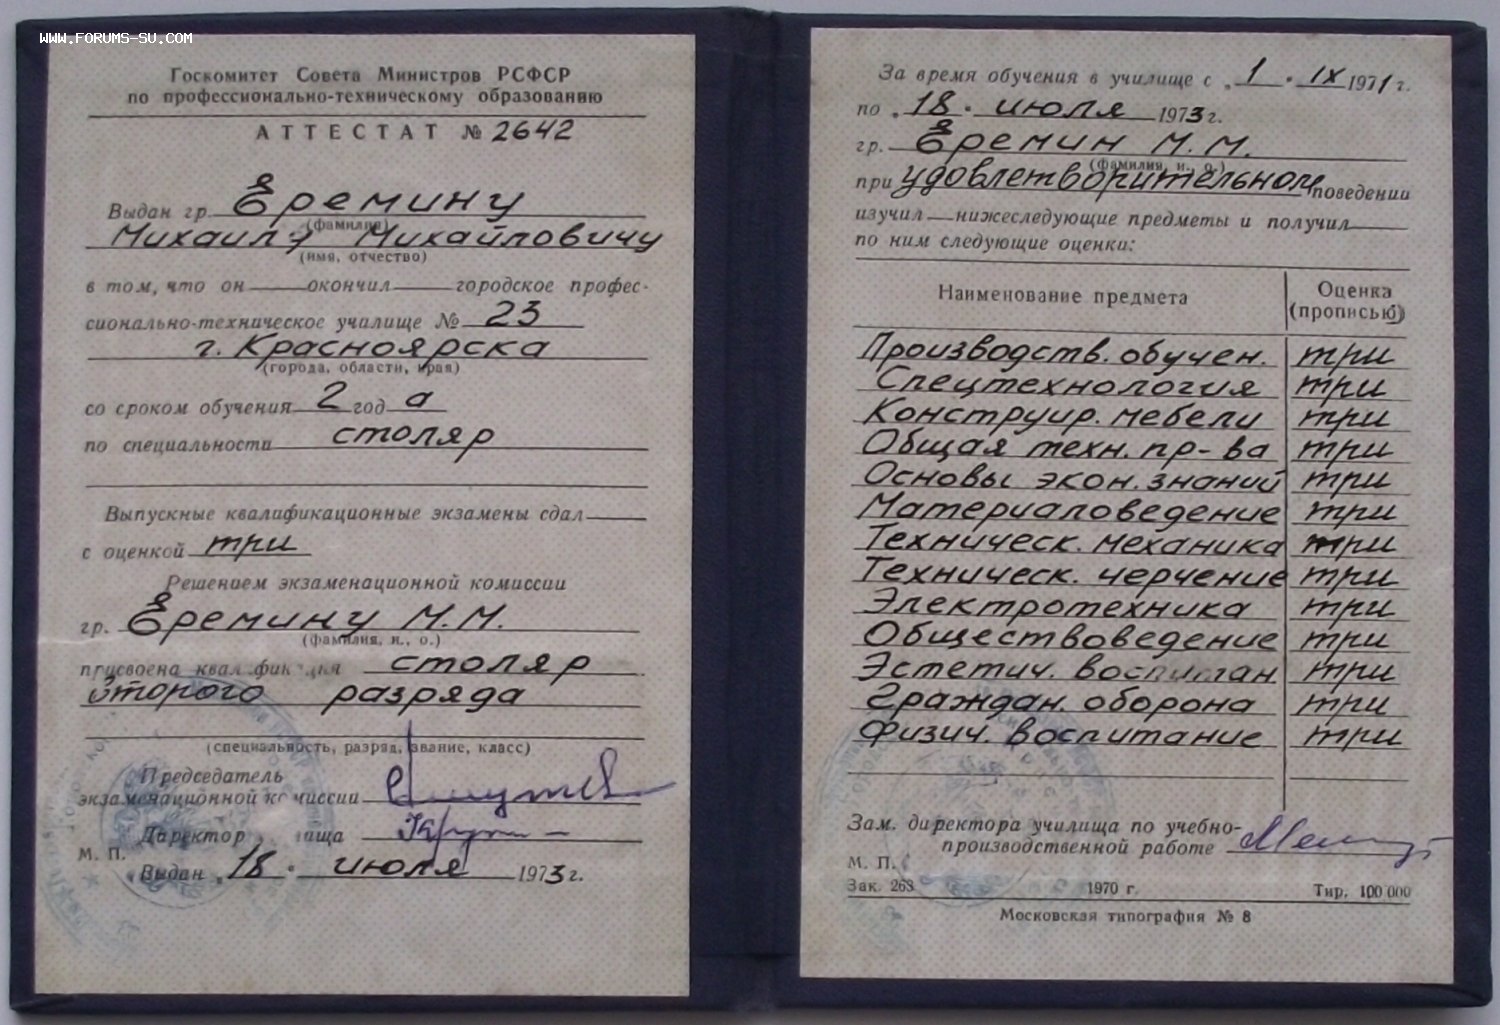 WWW.FORUMS-SU.COM
Госкомитет Совета Министров РСФСР
по профессионально-техническому образованию
АТТЕСТАТ № 2642
Выдан гр. Ерёмину
(фамилия)
Михаилу Михайловичу
(имя, отчество)
в том, что он окончил городское профес-
сионально-техническое училище № 23
г. Красноярска
(города, области, края)
со сроком обучения 2 год а
по специальности столяр
Выпускные квалификационные экзамены сдал
с оценкой три
Решением экзаменационной комиссии
гр. Еремину М.М.
(фамилия, и., о.)
присвоена квалификация столяр
второго разряда
(специальность, разряд, звание, класс)
Председатель
экзаменационной комиссии
Директор
М. П.
Выдан „18" июля 1973 г.
За время обучения в училище с „1" IX 1971 г.
по „18" июля 1973 г.
гр. Еремин М.М.
(фамилия, и. о.)
при удовлетворительном поведении
изучил нижеследующие предметы и получил
по ним следующие оценки:
Наименование предмета Оценка (прописью)
Производств. обучен. три
Спецтехнология три
Конструир. мебели три
Общая техн. пр-ва три
Основы экон. знаний три
Материаловедение три
Техническ. механика три
Техническ. черчение три
Электротехника три
Обществоведение три
Эстетич. воспитан три
Граждан. оборона три
Физич. воспитание три
Зам. директора училища по учебно-
производственной работе
М. П.
Зак. 263 1970 г. Тир. 100 000
Московская типография № 8